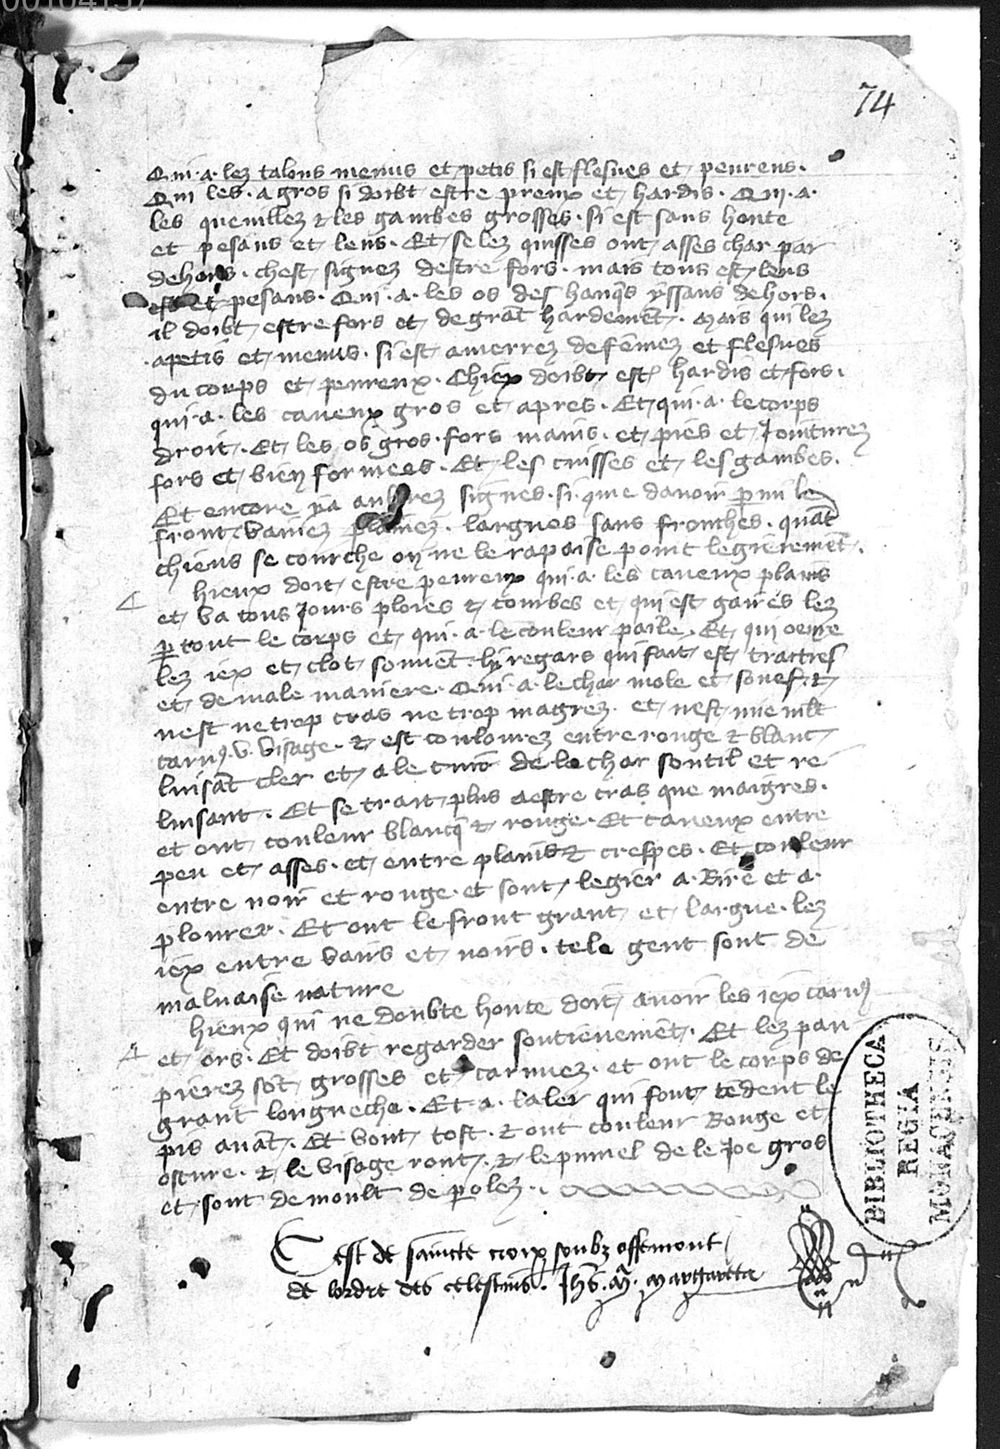 00104137
74
Qui . a . lez talons menus et petis si est flesves et peurens .
Qui les . a gros si doibt estre preux et hardis . Qui . a .
les quevillez & les gambes grosses . si est sans honte
et pesans et lens . Et se lez quisses ont asses char par
dehors . chest signez destre fors . mais tous est lens
est et pesans . Qui . a . les os des hanq̄s yssans dehors .
il doibt estre fors et de grāt hardemēt . Mais qui lez
. a petis et menus . si est amerrez de fēmez et flesves
du corps et peureux . Chiex doibt est̄ hardis et fors .
qui . a . les caveux gros et apres . Et qui . a . le corps
droit . Et les os gros . fors mains . et pies et Jointurez
fors et bien formees . Et les cuisses et les gambes .
Et encore ya aultrez signes . si que davoir p̄mi le
front vainez plainez . largues sans fronches . quāt
chiens se courche on ne le rapaise point legierement .
hieux doit estre peureux qui . a . les caveux plains
et va tous Jours ploies & courbes et qui est gaires lez
p̄ tout le corps et qui . a . le couleur paile . Et qui oevre
lez iex et clot souvēt . ly regars qui fait est traitres
et de male maniere . Qui . a . le char mole et souef . &
nest ne trop cras ne trop magrez . et nest mie mlt
visage . & est coulourez entre rouge & blanc
luisāt cler et a le cuir de le char soutil et re
luisant . Et se trait plus destre cras que maigres .
et ont couleur blancq̄ & rouge . Et caveux entre
peu et asses . et entre plains & crespes . Et couleur
entre noir et rouge . et sont legier a . Rire et a .
plourer . Et ont le front grant et largue . lez
iex entre vairs et noirs . tele gent sont de
malvaise nature
hieux qui ne doubte honte doit avoir les iex
et ors . Et doibt regarder soutievement . Et lez pau
pierez sōt grosses et . et ont le corps de
grant longueche . Et . a . laler qui font tedent le
pis avāt . Et vont tost . & ont couleur Rouge et
oscure . & le visage ront . & le pumel de le Joe gros
et sont de moult de p̄olez .
C est de saincte croix soubz offemont
de lordre des celestins . Jhs . M . Margarita
BIBLIOTHECA
REGIA
MONACENSIS